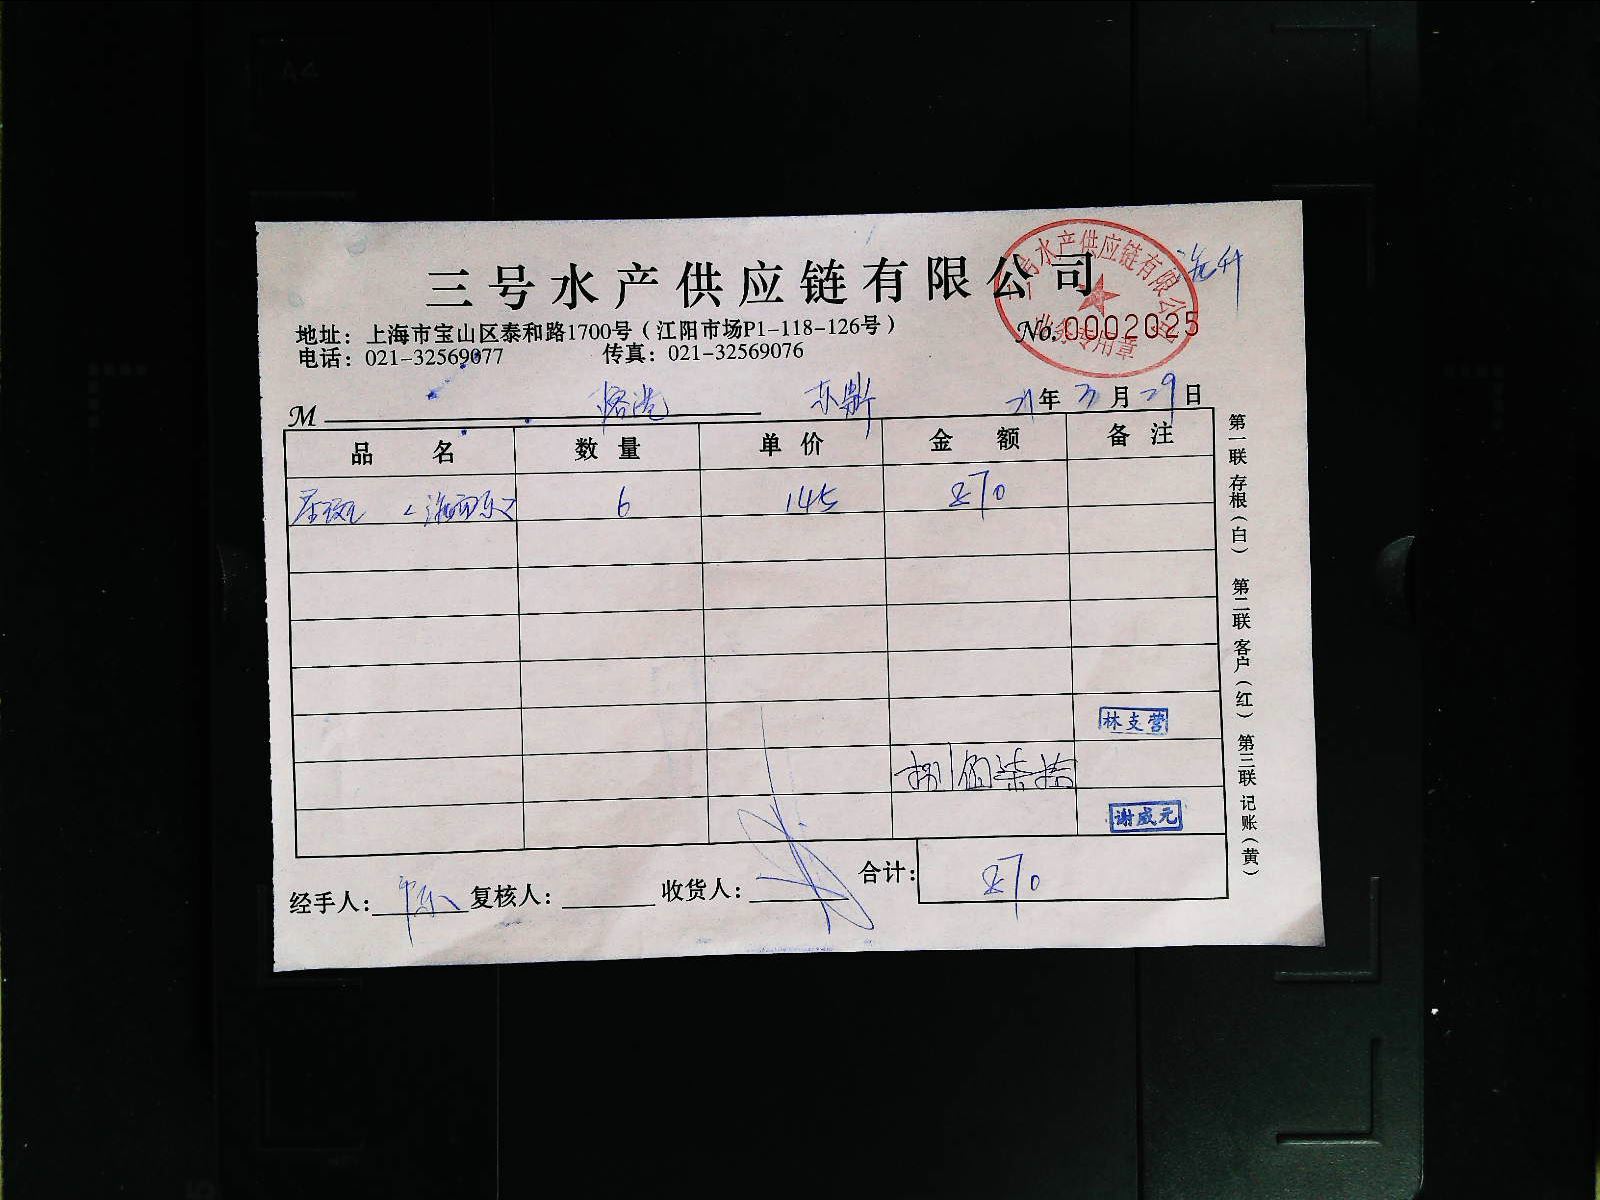 三号水产供应链有限公司
水产供应链有限公
业务专用章
地址：上海市宝山区泰和路1700号（江阳市场P1-118-126号）
No.0002025
电话：021-32569077 传真：021-32569076
M 21年 3月 29日
品名 数量 单价 金额 备注
6 145 870
林支营
捌佰柒拾
谢威元
经手人： 复核人： 收货人： 合计：870
第一联 存根（白） 第二联 客户（红） 第三联 记账（黄）